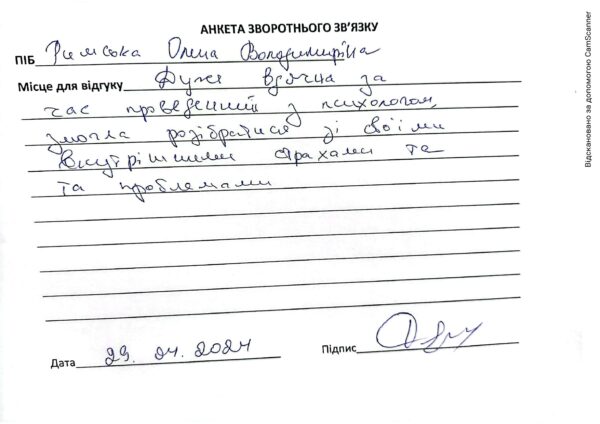 АНКЕТА ЗВОРОТНЬОГО ЗВ'ЯЗКУ
ПІБ Римська Олена Володимирівна
Місце для відгуку Дуже вдячна за
час проведений з психологом,
змогла розібратися зі своїми
внутрішніми страхами та
та проблемами
Дата 29.04.2024 Підпис
Відскановано за допомогою CamScanner